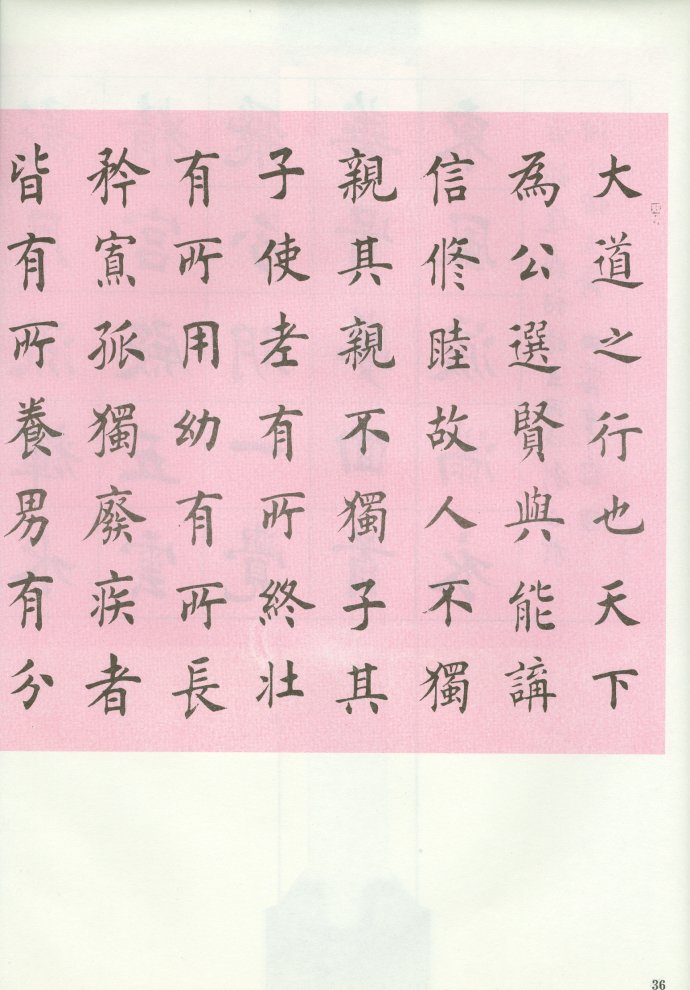 大道之行也天下
為公選賢與能講
信修睦故人不獨
親其親不獨子其
子使老有所終壯
有所用幼有所長
矜寡孤獨廢疾者
皆有所養男有分
36